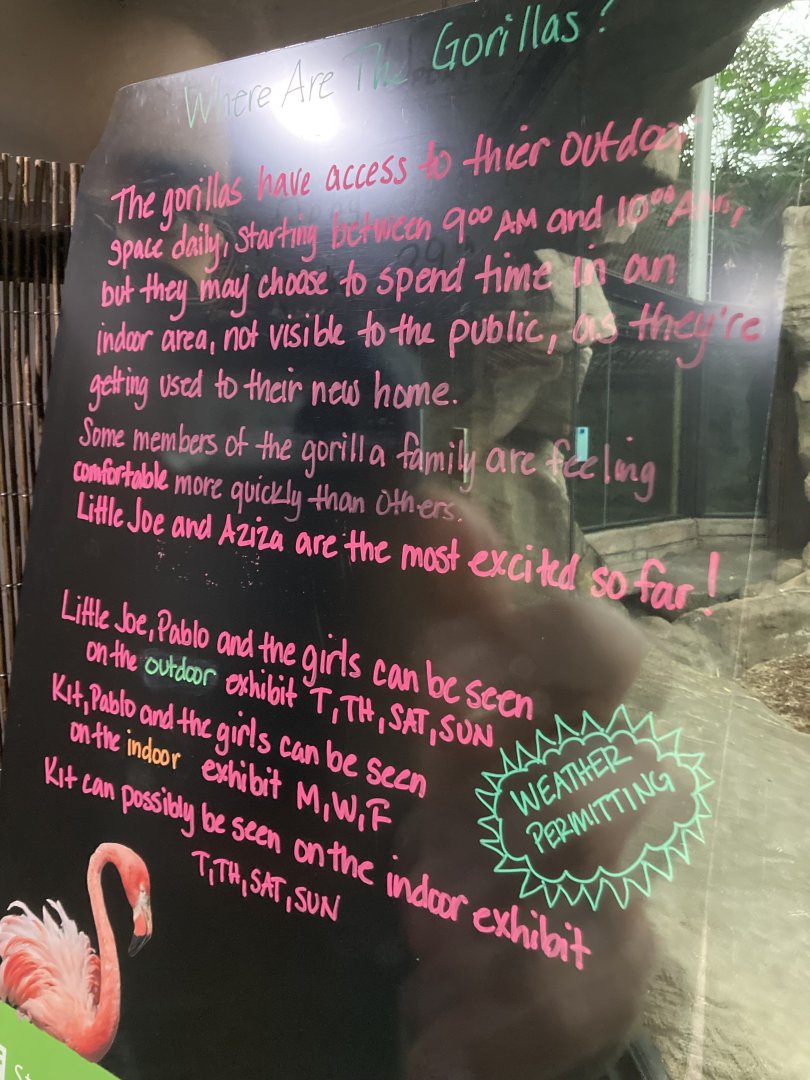 Where Are The Gorillas?
The gorillas have access to thier outdoor
space daily, starting between 9⁰⁰ AM and 10⁰⁰ AM,
but they may choose to spend time in an
indoor area, not visible to the public, as they're
getting used to their new home.
Some members of the gorilla family are feeling
comfortable more quickly than others.
Little Joe and Aziza are the most excited so far!
Little Joe, Pablo and the girls can be seen
on the outdoor exhibit T, TH, SAT, SUN
Kit, Pablo and the girls can be seen
on the indoor exhibit M, W, F
Kit can possibly be seen on the indoor exhibit
T, TH, SAT, SUN
WEATHER
PERMITTING